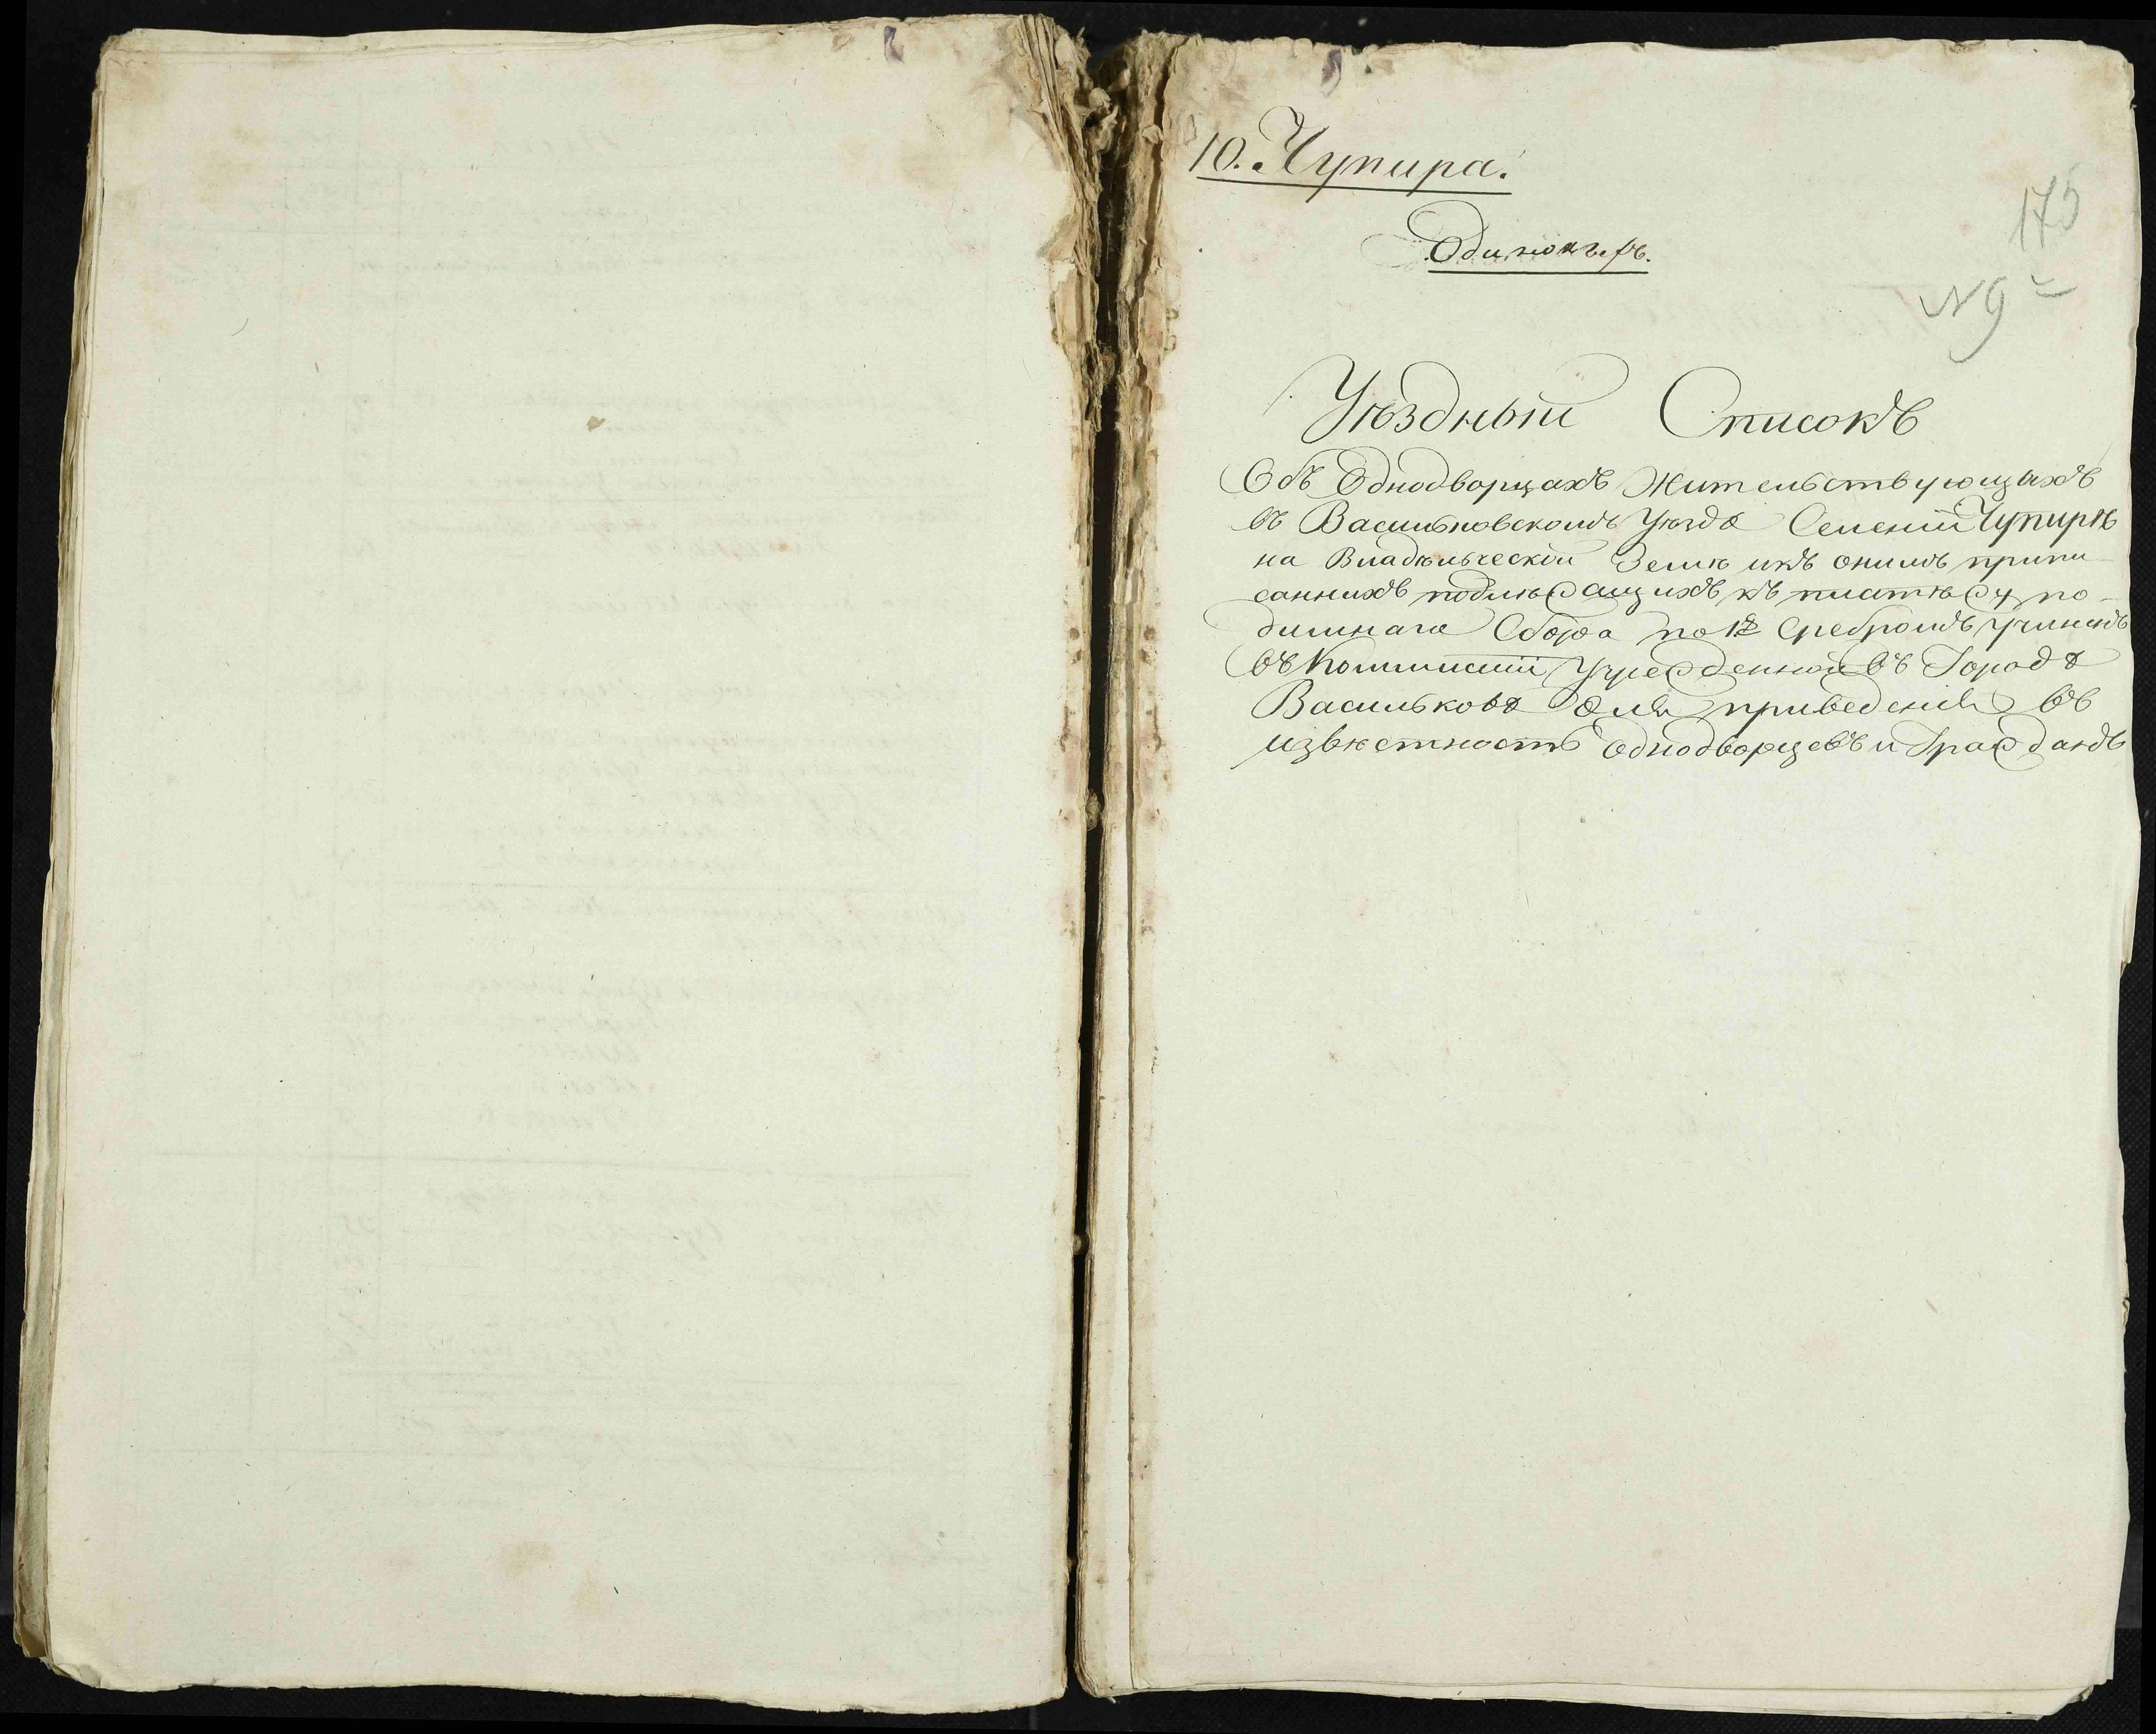 10. Чупира.
175
№ 9
Уѣздный Списокъ
Объ Однодворцахъ Жительствующахъ
въ Васильковскомъ Уѣздѣ Селеніи Чупирѣ
на Владѣльческой Землѣ икъ онымъ припи-
санныхъ подлѣжащихъ къ платѣжу по-
дымнаго Сбора по 1 Сребромъ Учиненъ
въ Коммиссіи Учрежденной въ Городѣ
Васильковѣ для приведенія въ
извѣстность Однодворцевъ и Гражданъ